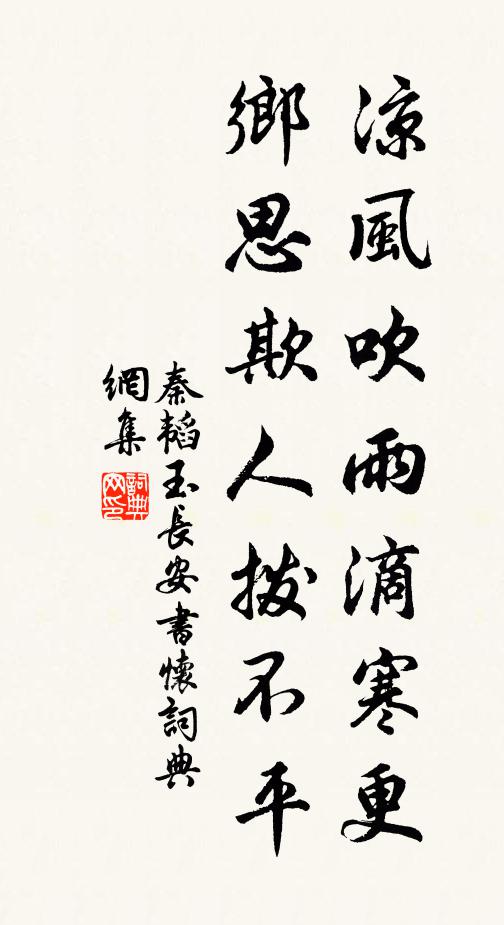 涼風吹雨滴寒更
鄉思欺人撥不平
秦韜玉長安書懷詞典
網集
詞典
网印